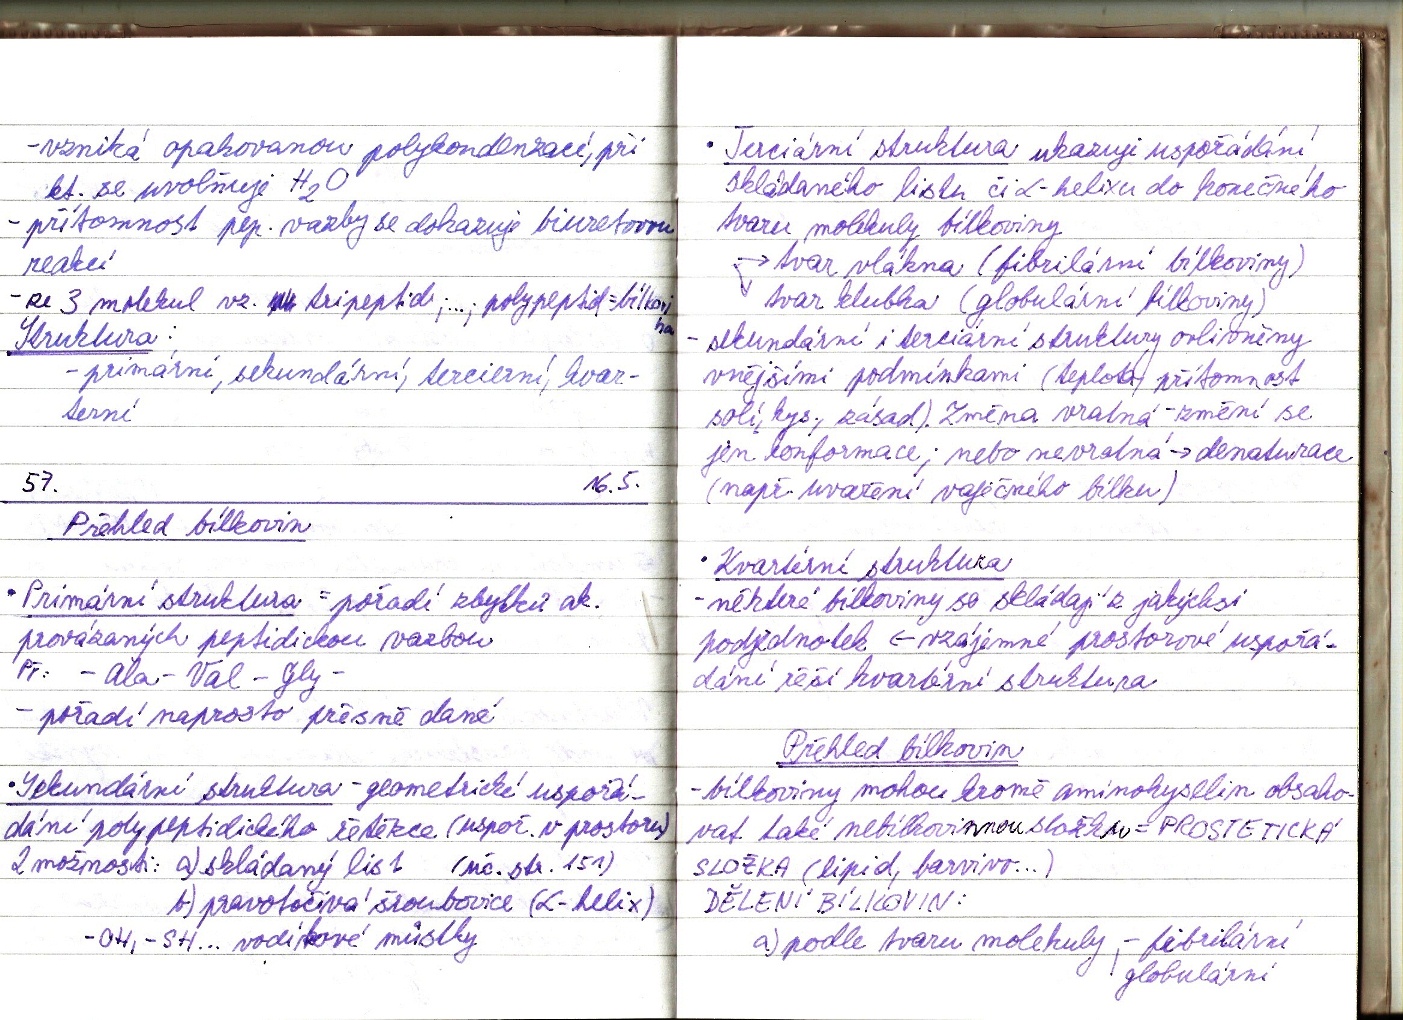 -vzniká opakovanou polykondenzací, při
kt. se uvolňuje H₂O
- přítomnost pep. vazby se dokazuje biuretovou
reakcí
- ze 3 molekul vz. tripeptid; ...; polypeptid=bílkovi
na
Struktura:
- primární, sekundární, tercierní, kvar-
terní
57. 16.5.
Přehled bílkovin
• Primární struktura = pořadí zbytků ak.
provázaných peptidickou vazbou
Př: - Ala - Val - Gly -
- pořadí naprosto přesně dané
• Sekundární struktura - geometrické uspořá-
dání polypeptidického řetězce (uspoř. v prostoru)
2 možnosti: a) skládaný list (uč. str. 151)
b) pravotočivá šroubovice (α-helix)
-OH, -SH... vodíkové můstky
• Terciární struktura ukazuje uspořádání
skládaného listu či α-helixu do konečného
tvaru molekuly bílkoviny
→ tvar vlákna (fibrilární bílkoviny)
tvar klubka (globulární bílkoviny)
- sekundární i terciární struktury ovlivněny
vnějšími podmínkami (teplota, přítomnost
solí, kys., zásad). Změna vratná - změní se
jen konformace; nebo nevratná → denaturace
(např. uvaření vaječného bílku)
• Kvartérní struktura
- některé bílkoviny se skládají z jakýchsi
podjednotek ← vzájemné prostorové uspořá-
dání řeší kvartérní struktura
Přehled bílkovin
- bílkoviny mohou kromě aminokyselin obsaho-
vat také nebílkovinnou složku = PROSTETICKÁ
SLOŽKA (lipid, barvivo...)
DĚLENÍ BÍLKOVIN:
a) podle tvaru molekuly - fibrilární
globulární